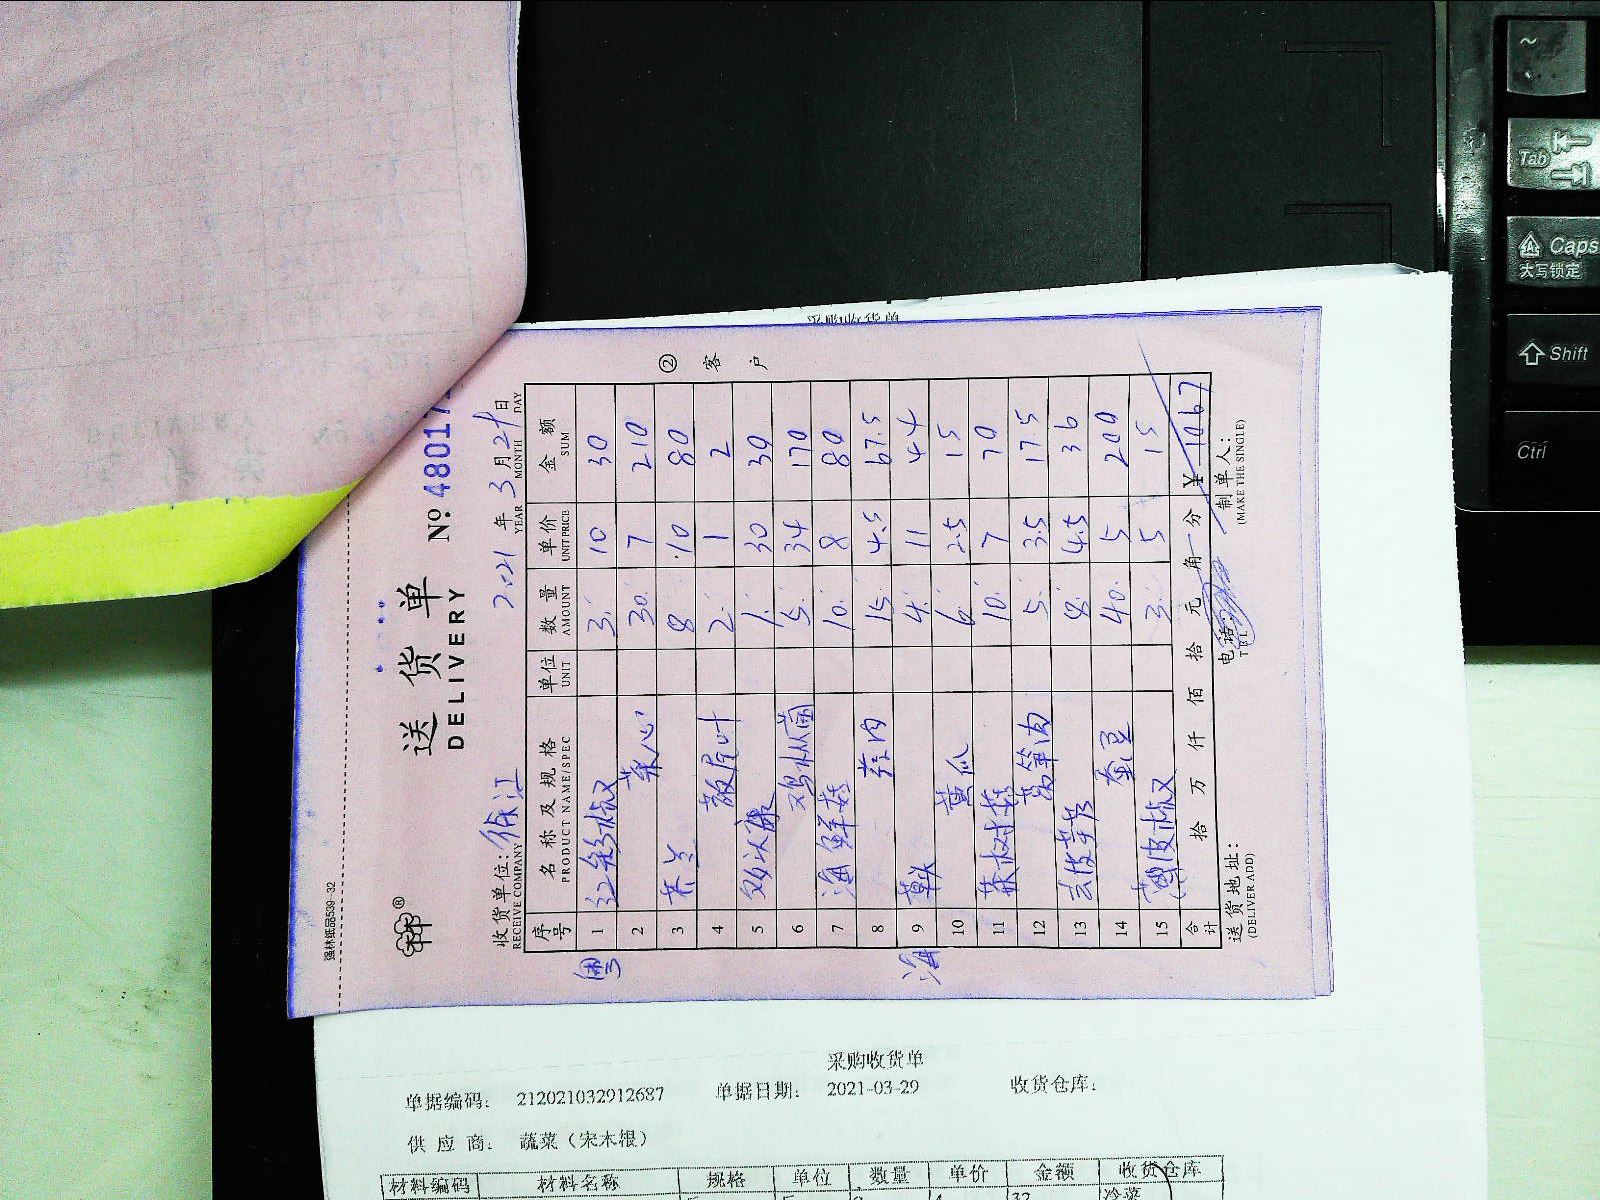 强林纸品539-32
送货单
DELIVERY
№ 48017
收货单位: 徐江 2021年3月29日
RECEIVE COMPANY YEAR MONTH DAY
序号 名称及规格 单位 数量 单价 金额
PRODUCT NAME/SPEC UNIT AMOUNT UNIT PRICE SUM
1 红彩椒 3 10 30
2 菜心 30 7 210
3 芥兰 8 10 80
4 2 1 2
5 1 30 30
6 鸡枞菌 5 34 170
7 海鲜菇 10 8 80
8 15 4.5 67.5
9 4 11 44
10 黄瓜 6 2.5 15
11 茶树菇 10 7 70
12 莴笋肉 5 3.5 17.5
13 去皮芋艿 8 4.5 36
14 蚕豆 40 5 200
15 薄皮椒 3 5 15
合计 拾 万 仟 佰 拾 元 角 分 ¥ 1067
送货地址: 电话: 制单人:
(DELIVER ADD) TEL (MAKE THE SINGLE)
② 客户
采购收货单
采购收货单
单据编码: 212021032912687 单据日期: 2021-03-29 收货仓库:
供应商: 蔬菜(宋木根)
材料编码 材料名称 规格 单位 数量 单价 金额 收货仓库
32 冷菜
~
Tab
Caps
大写锁定
Shift
Ctrl